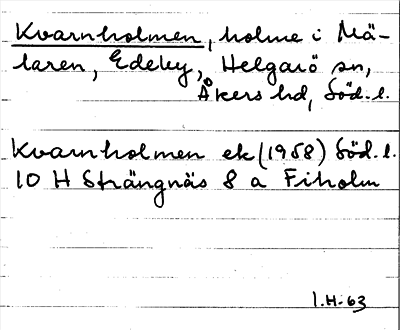 Kvarnholmen, holme i Mä-
laren, Edeby, Helgarö sn,
Åkers hd, Söd. l.
Kvarnholmen ek (1958) Söd. l.
10 H Strängnäs 8 a Fiholm
I.H-63